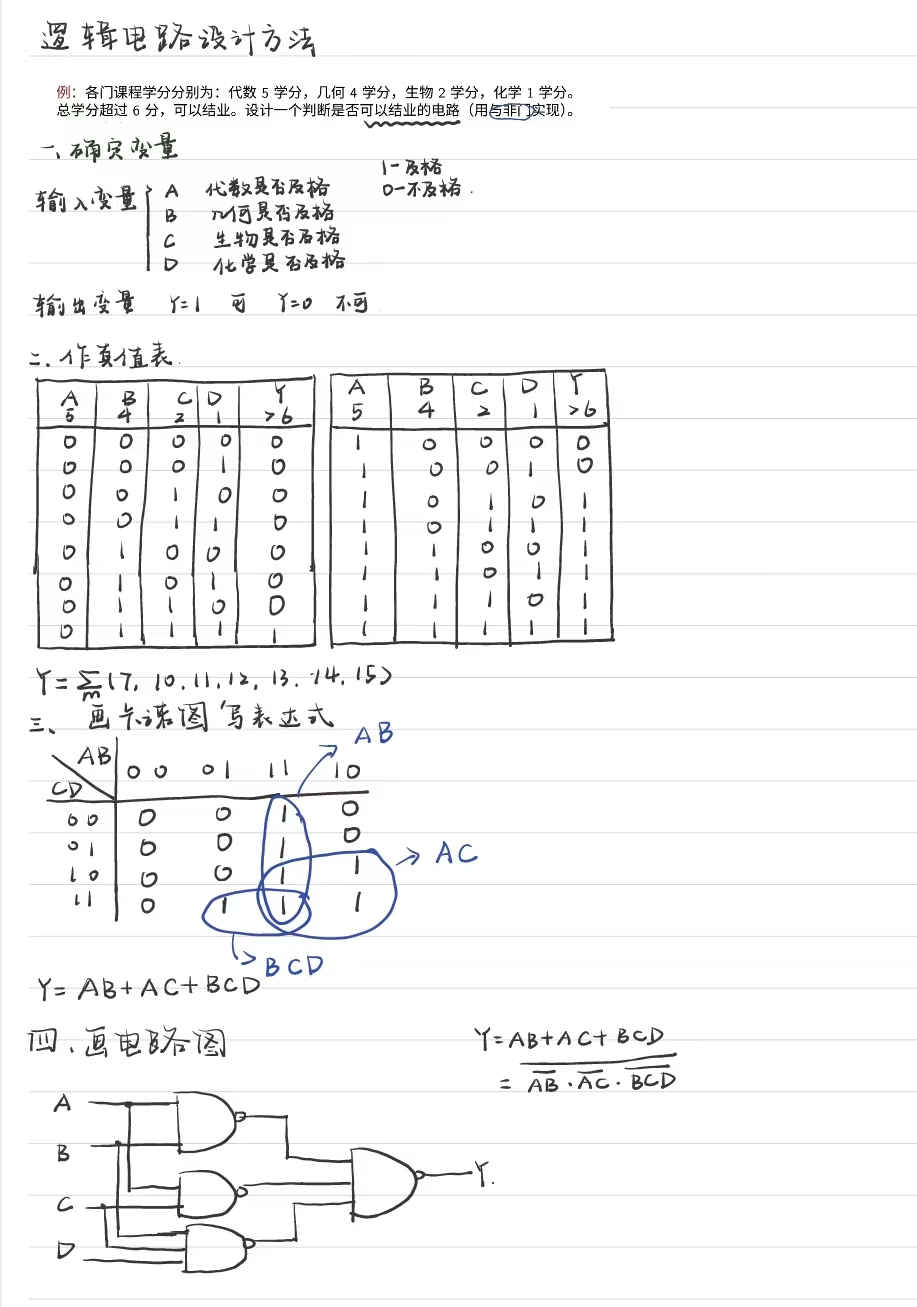 逻辑电路设计方法
例：各门课程学分分别为：代数 5 学分，几何 4 学分，生物 2 学分，化学 1 学分。
总学分超过 6 分，可以结业。设计一个判断是否可以结业的电路（用与非门实现）。
一、确定变量
1-及格
0-不及格.
输入变量
A 代数是否及格
B 几何是否及格
C 生物是否及格
D 化学是否及格
输出变量 Y=1 可 Y=0 不可
二.作真值表.
A B C D Y
5 4 2 1 >6
0 0 0 0 0
0 0 0 1 0
0 0 1 0 0
0 0 1 1 0
0 1 0 0 0
0 1 0 1 0
0 1 1 0 0
0 1 1 1 1
A B C D Y
5 4 2 1 >6
1 0 0 0 0
1 0 0 1 0
1 0 1 0 1
1 0 1 1 1
1 1 0 0 1
1 1 0 1 1
1 1 1 0 1
1 1 1 1 1
Y=∑m(7, 10.11.12, 13.14.15)
三、画卡诺图 写表达式
AB
AB
CD
00 01 11 10
00 0 0 1 0
01 0 0 1 0
10 0 0 1 1
11 0 1 1 1
AC
BCD
Y= AB+AC+BCD
四.画电路图
Y=AB+AC+BCD
= \overline{\overline{AB}·\overline{AC}·\overline{BCD}}
A
B
C
D
Y.